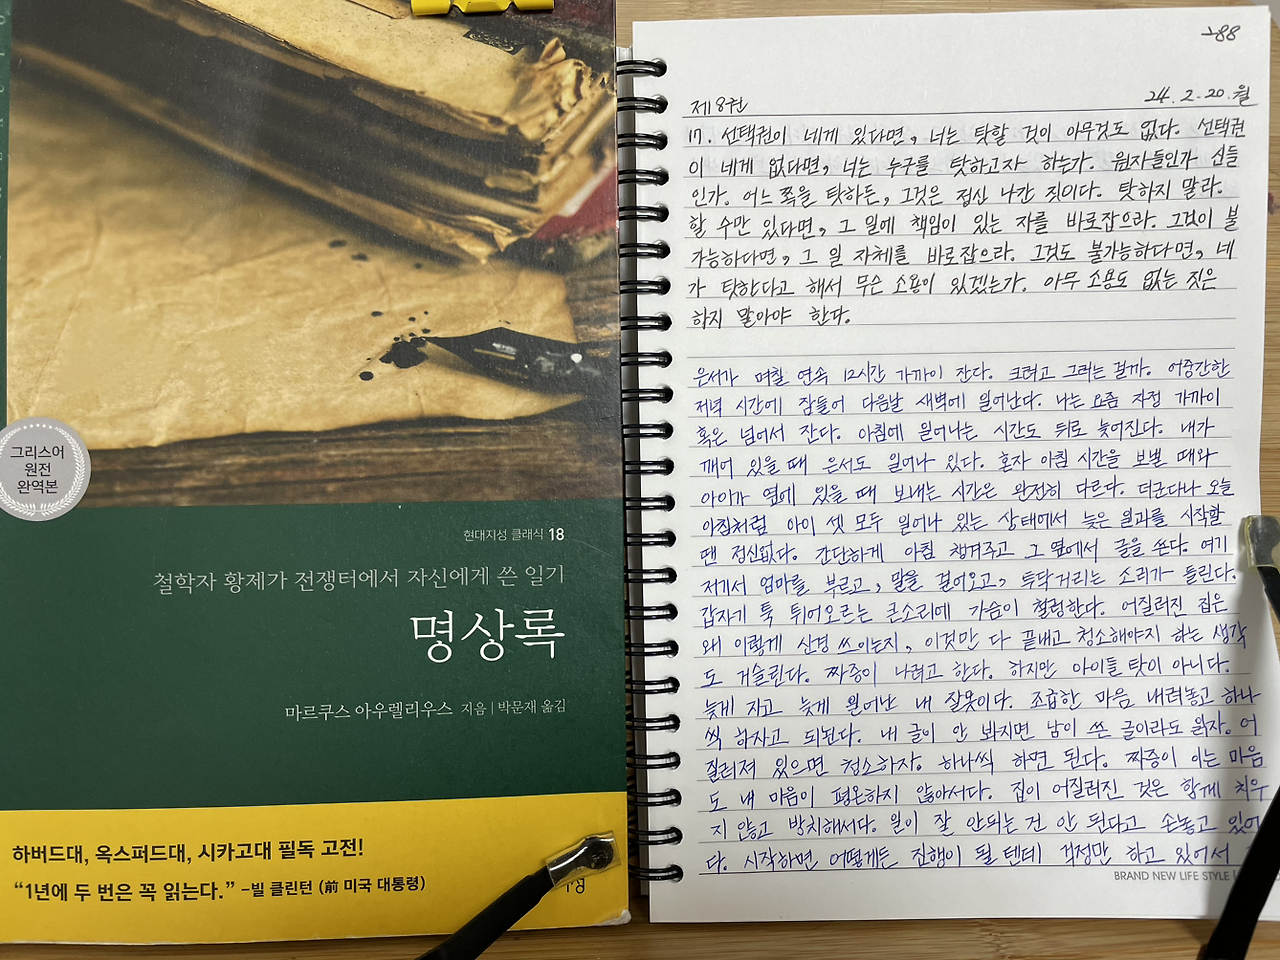 그리스어
원전
완역본
현대지성 클래식 18
철학자 황제가 전쟁터에서 자신에게 쓴 일기
명상록
마르쿠스 아우렐리우스 지음 | 박문재 옮김
하버드대, 옥스퍼드대, 시카고대 필독 고전!
“1년에 두 번은 꼭 읽는다.” –빌 클린턴 (前 미국 대통령)
→88
제8권
24. 2. 20. 월
17. 선택권이 네게 있다면, 너는 탓할 것이 아무것도 없다. 선택권
이 네게 없다면, 너는 누구를 탓하고자 하는가. 원자들인가 신들
인가. 어느 쪽을 탓하든, 그것은 정신 나간 짓이다. 탓하지 말라.
할 수만 있다면, 그 일에 책임이 있는 자를 바로잡으라. 그것이 불
가능하다면, 그 일 자체를 바로잡으라. 그것도 불가능하다면, 네
가 탓한다고 해서 무슨 소용이 있겠는가. 아무 소용도 없는 짓은
하지 말아야 한다.
은서가 며칠 연속 12시간 가까이 잔다. 크려고 그러는 걸까. 어중간한
저녁 시간에 잠들어 다음날 새벽에 일어난다. 나는 요즘 자정 가까이
혹은 넘어서 잔다. 아침에 일어나는 시간도 뒤로 늦어진다. 내가
깨어 있을 때 은서도 일어나 있다. 혼자 아침 시간을 보낼 때와
아이가 옆에 있을 때 보내는 시간은 완전히 다르다. 더군다나 오늘
아침처럼 아이 셋 모두 일어나 있는 상태에서 늦은 일과를 시작할
땐 정신없다. 간단하게 아침 챙겨주고 그 옆에서 글을 쓴다. 여기
저기서 엄마를 부르고, 말을 걸어오고, 투닥거리는 소리가 들린다.
갑자기 툭 튀어오르는 큰소리에 가슴이 철렁한다. 어질러진 집은
왜 이렇게 신경 쓰이는지, 이것만 다 끝내고 청소해야지 하는 생각
도 거슬린다. 짜증이 나려고 한다. 하지만 아이들 탓이 아니다.
늦게 자고 늦게 일어난 내 잘못이다. 조급한 마음 내려놓고 하나
씩 하자고 되뇐다. 내 글이 안 봐지면 남이 쓴 글이라도 읽자. 어
질러져 있으면 청소하자. 하나씩 하면 된다. 짜증이 이는 마음
도 내 마음이 평온하지 않아서다. 집이 어질러진 것은 함께 치우
지 않고 방치해서다. 일이 잘 안되는 건 안 된다고 손놓고 있어
다. 시작하면 어떻게든 진행이 될 텐데 걱정만 하고 있어서
BRAND NEW LIFE STYLE